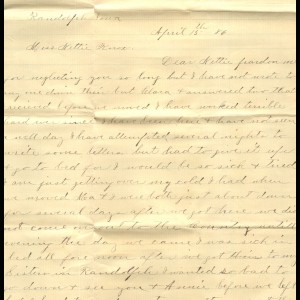 Randolph Iowa
April 18th 86
Miss Nettie
Dear Nettie pardon me
for neglecting you so long but I have not wrote to
any one since then but Clara & answered two that
I received before we moved I have worked terrible
hard ever since I have been here & have not
a well day I have attempted several nights to
write some letters but had to give it up &
go to bed for I would be so sick & tired
I am just getting over my cold I had when
we moved Ma & I were both just about down
for several days after we got here we did
not come out to the until
evening the day we came I was sick in
bed all fore noon after we got there to
in Randolph I wanted so bad to
go down & see you & Annie before we left